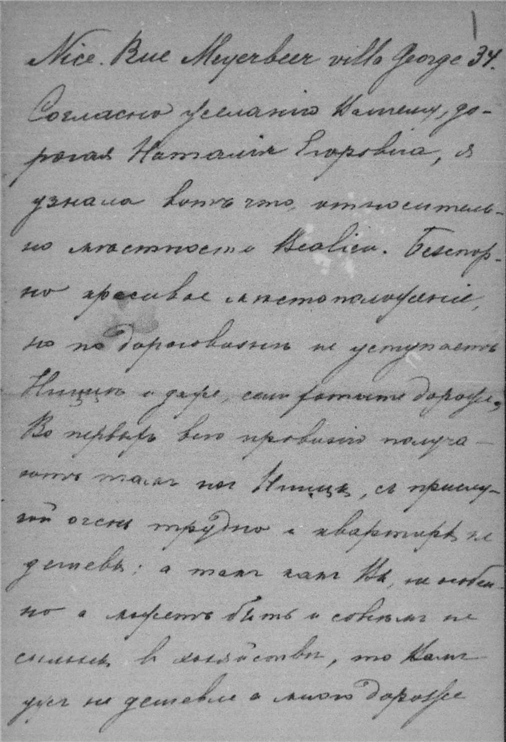 1
Nice. Rue Meyerbeer villa George 34.
Согласно желанію Вашему, до-
рогая Наталія Егоровна, я
узнала вотъ что, относитель-
но мѣстности Bealieu. Безспор-
но красивое мѣстоположеніе,
но по дороговизнѣ не уступаетъ
Ниццѣ и даже, если хотите дороже,
Во первыхъ всю провизію получа-
ютъ тамъ изъ Ниццы, съ прислу-
гой очень трудно и квартиры не
дешевы; а такъ какъ Вы, не особен-
но а можетъ быть и совсѣмъ не
сильны въ хозяйствѣ, то Вамъ
ужъ не дешевле а много дороже